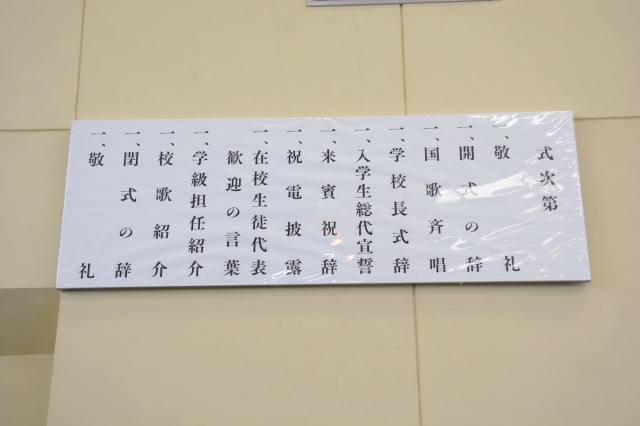 式次第
一、敬礼
一、開式の辞
一、国歌斉唱
一、学校長式辞
一、入学生総代宣誓
一、来賓祝辞
一、祝電披露
一、在校生徒代表
歓迎の言葉
一、学級担任紹介
一、校歌紹介
一、閉式の辞
一、敬礼